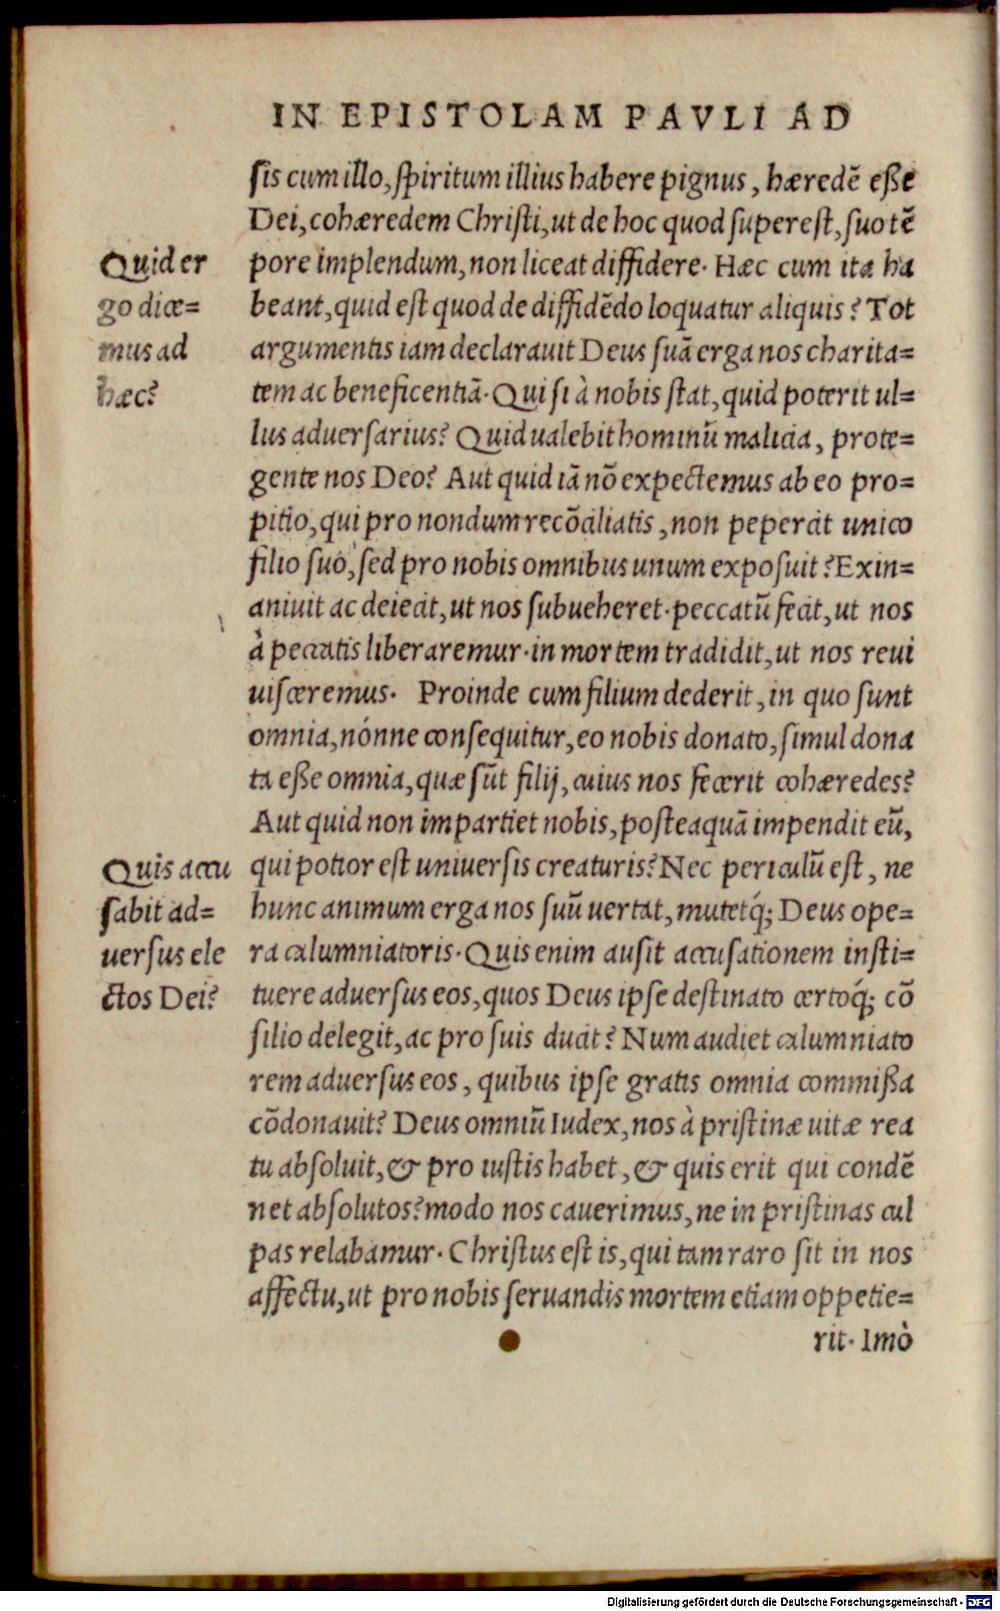 IN EPISTOLAM PAVLI AD
sis cum illo, spiritum illius habere pignus, hæredē eße
Dei, cohæredem Christi, ut de hoc quod superest, suo tē
pore implendum, non liceat diffidere. Hæc cum ita ha
beant, quid est quod de diffidēdo loquatur aliquis? Tot
argumentis iam declarauit Deus suā erga nos charita=
tem ac beneficentiā. Qui si à nobis stat, quid poterit ul=
lus aduersarius? Quid ualebit hominū malicia, prote=
gente nos Deo? Aut quid iā nō expectemus ab eo pro=
pitio, qui pro nondum recōciliatis, non pepercit unico
filio suo, sed pro nobis omnibus unum exposuit? Exin=
aniuit ac deiecit, ut nos subueheret. peccatū fecit, ut nos
à peccatis liberaremur. in mortem tradidit, ut nos reui
uisceremus. Proinde cum filium dederit, in quo sunt
omnia, nónne consequitur, eo nobis donato, simul dona
ta eße omnia, quæ sūt filij, cuius nos fecerit cohæredes?
Aut quid non impartiet nobis, posteaquā impendit eū,
qui potior est uniuersis creaturis? Nec periculū est, ne
hunc animum erga nos suū uertat, mutetq́; Deus ope=
ra calumniatoris. Quis enim ausit accusationem insti=
tuere aduersus eos, quos Deus ipse destinato certoq́; cō
silio delegit, ac pro suis ducit? Num audiet calumniato
rem aduersus eos, quibus ipse gratis omnia commißa
cōdonauit? Deus omniū Iudex, nos à pristinæ uitæ rea
tu absoluit, & pro iustis habet, & quis erit qui condē
net absolutos? modo nos cauerimus, ne in pristinas cul
pas relabamur. Christus est is, qui tam raro sit in nos
affectu, ut pro nobis seruandis mortem etiam oppetie=
rit. Imò
Quid er
go dice=
mus ad
hæc?
Quis accu
sabit ad=
uersus ele
ctos Dei?
Digitalisierung gefördert durch die Deutsche Forschungsgemeinschaft - DFG